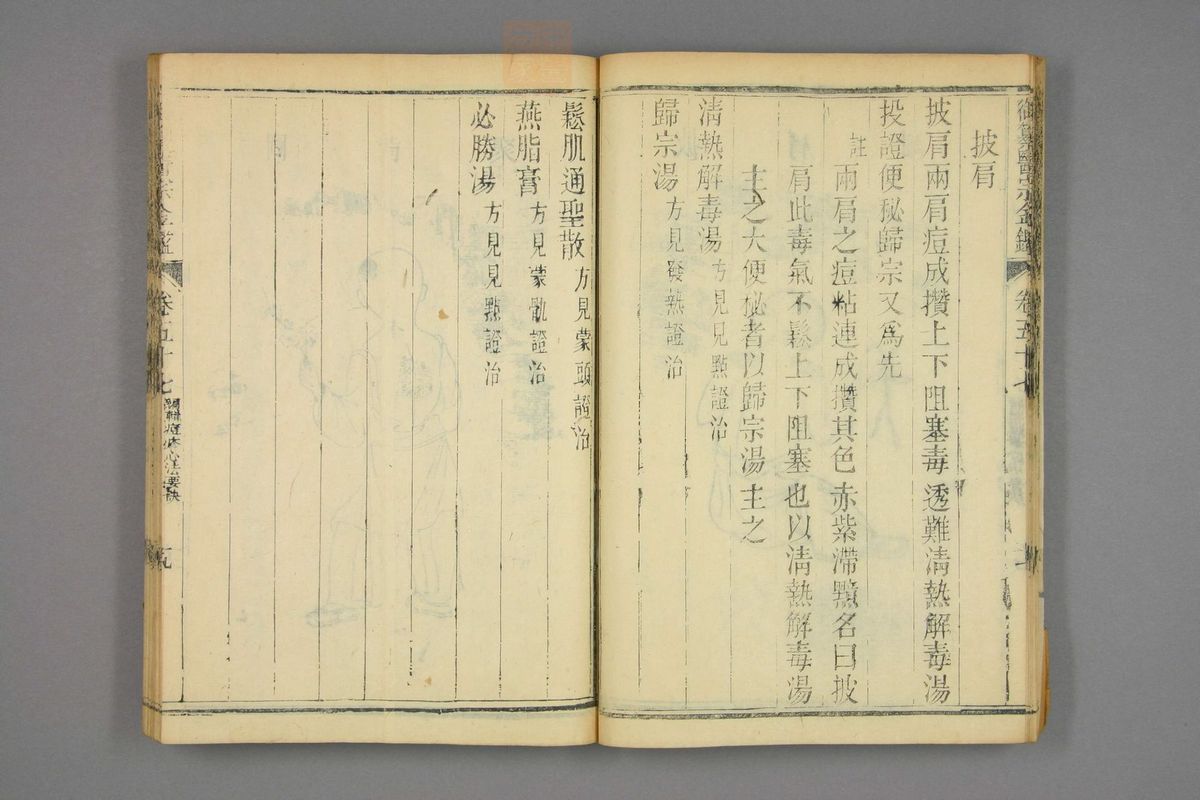 御纂醫宗金鑑 卷五十七
披肩
披肩兩肩痘成攢上下阻塞毒透難清熱解毒湯
投證便秘歸宗又爲先
註 兩肩之痘粘連成攢其色赤紫滯黯名曰披
肩此毒氣不鬆上下阻塞也以清熱解毒湯
主之大便秘者以歸宗湯主之
清熱解毒湯 方見見點證治
歸宗湯 方見發熱證治
鬆肌通聖散 方見蒙頭證治
燕脂膏 方見蒙骩證治
必勝湯 方見見點證治
宗金鑑 卷五十七 編輯痘疹心法要訣